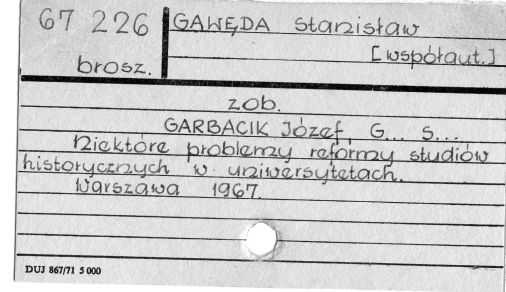 67 226 GAWĘDA Stanisław
brosz. [współaut.]
zob.
GARBACIK Józef, G... S...
Niektóre problemy reformy studiów
historycznych w uniwersytetach.
Warszawa 1967.
DUJ 867/71 5 000